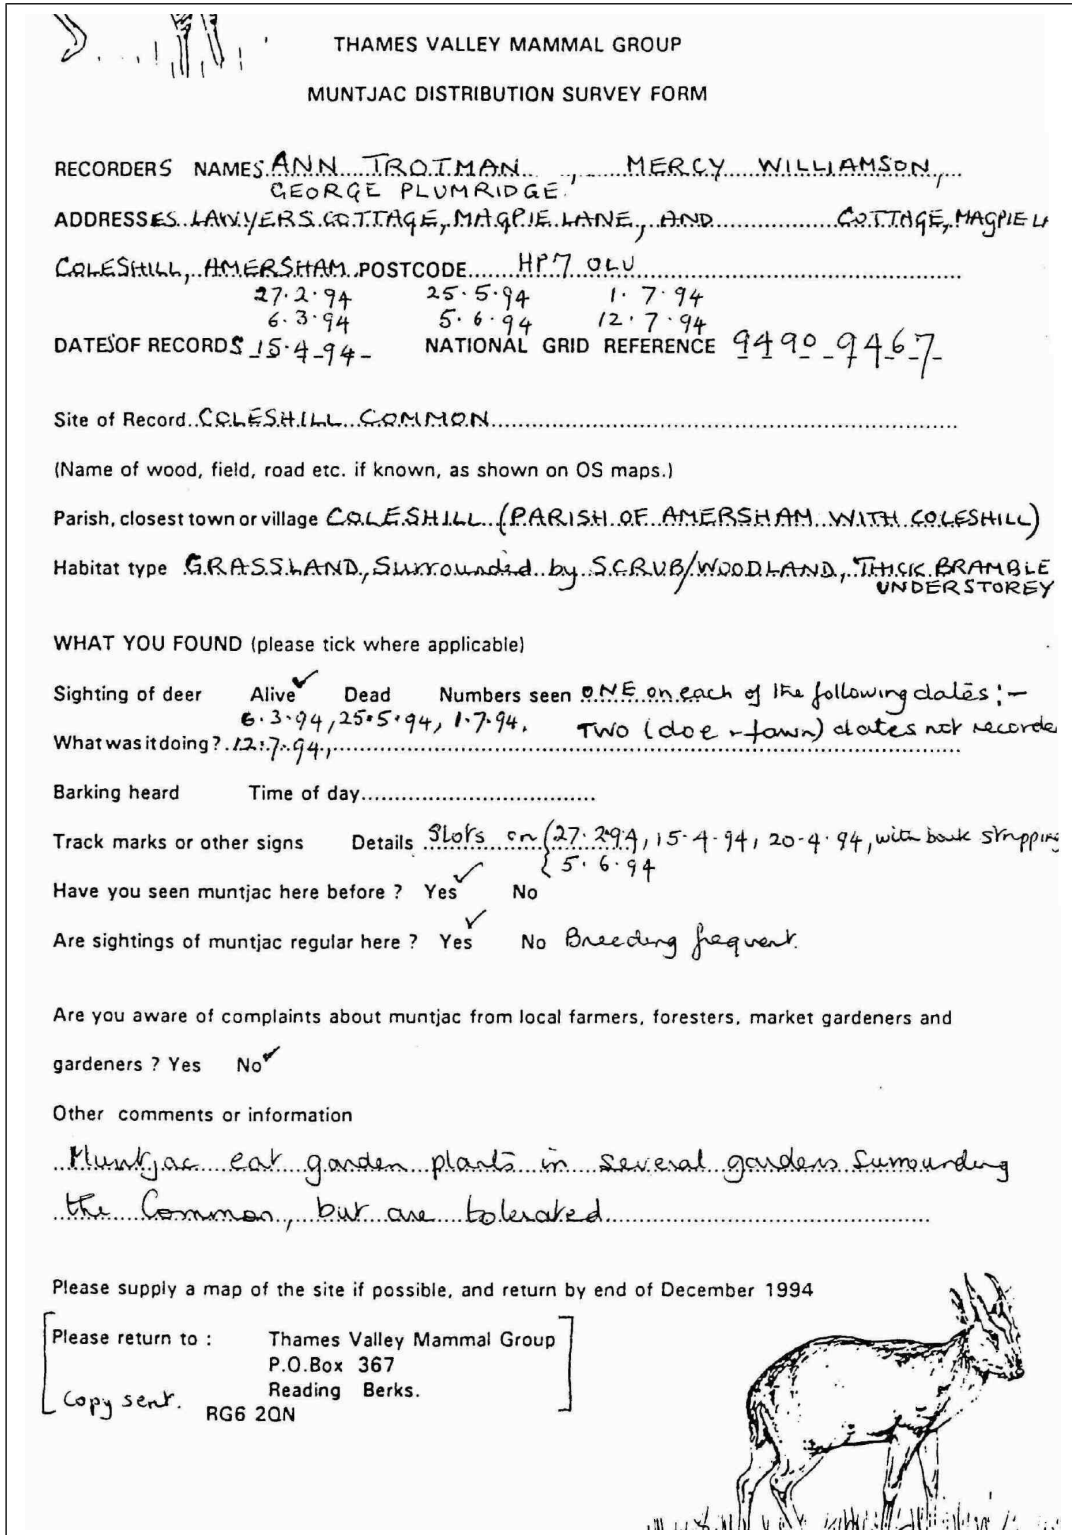 THAMES VALLEY MAMMAL GROUP
MUNTJAC DISTRIBUTION SURVEY FORM
RECORDERS NAMES ANN TROTMAN, MERCY WILLIAMSON,
GEORGE PLUMRIDGE.
ADDRESSES LAWYERS COTTAGE, MAGPIE LANE, AND COTTAGE, MAGPIE LA
COLESHILL, AMERSHAM POSTCODE HP7 0LU
27.2.94 25.5.94 1.7.94
6.3.94 5.6.94 12.7.94
DATES OF RECORDS 15.4.94 NATIONAL GRID REFERENCE 9490 9467
Site of Record COLESHILL COMMON
(Name of wood, field, road etc. if known, as shown on OS maps.)
Parish, closest town or village COLESHILL (PARISH OF AMERSHAM WITH COLESHILL)
Habitat type GRASSLAND, Surrounded by SCRUB/WOODLAND, THICK BRAMBLE
UNDERSTOREY
WHAT YOU FOUND (please tick where applicable)
Sighting of deer Alive ✓ Dead Numbers seen ONE on each of the following dates:-
6.3.94, 25.5.94, 1.7.94. TWO (doe + fawn) dates not recorde
What was it doing? 12.7.94,
Barking heard Time of day
Track marks or other signs Details Slots on {27.2.94, 15.4.94, 20.4.94, with bark stripping
{5.6.94
Have you seen muntjac here before ? Yes ✓ No
Are sightings of muntjac regular here ? Yes ✓ No Breeding frequent.
Are you aware of complaints about muntjac from local farmers, foresters, market gardeners and
gardeners ? Yes No ✓
Other comments or information
Muntjac eat garden plants in several gardens surrounding
the Common, but are tolerated
Please supply a map of the site if possible, and return by end of December 1994
[Please return to : Thames Valley Mammal Group]
P.O.Box 367
Copy sent. Reading Berks.
RG6 2QN